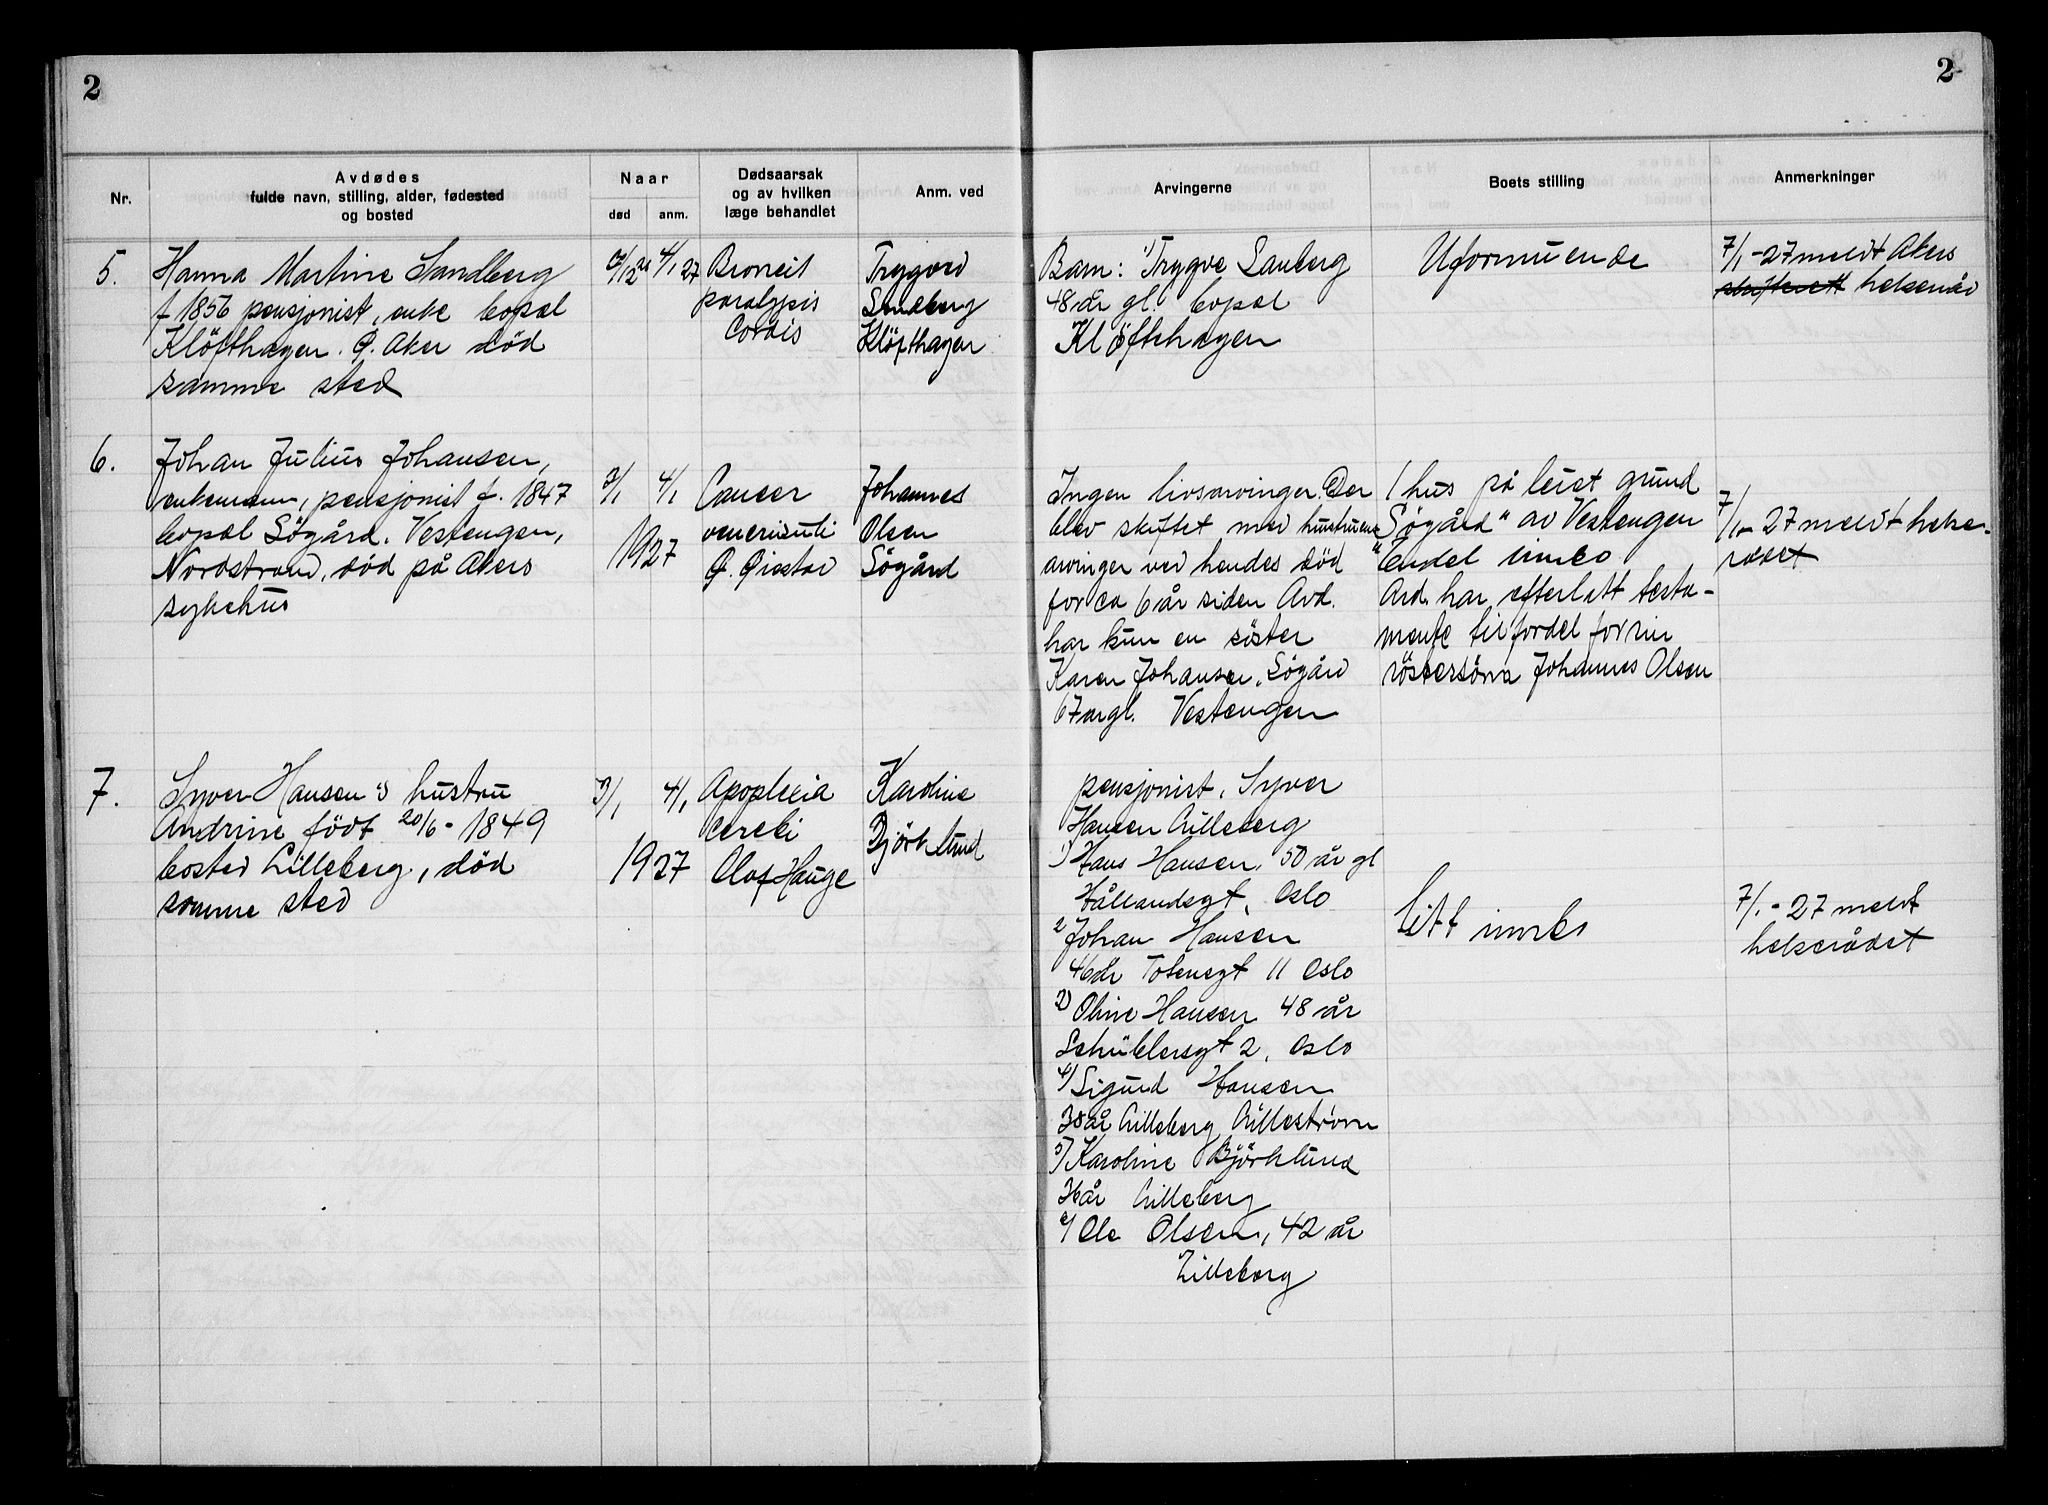 2
2
Nr.
Avdødes
fulde navn, stilling, alder, fødested
og bosted
Naar
død
anm.
Dødsaarsak
og av hvilken
læge behandlet
Anm. ved
Arvingerne
Boets stilling
Anmerkninger
5.
Hanna Martine Sandberg
f 1856 pensjonist, enke bopæl
Klöfthagen. Ö. Aker död
samme sted
4/1 27
paralysis
Cordis
Trygve
Sandberg
Klöfthagen
Barn: 1) Trygve Sanberg
48 år gl. bopæl
Kløftehagen
Uformuende
7/1-27 meldt Akers
skifterett helseråd
6.
Johan Julius Johansen,
enkemann, pensjonist f. 1847
bopæl Sögård. Vestengen,
Nordstrand, död på Akers
sykehus
3/1 4/1
1927
Cancer
ventriculi
Johannes
Olsen
Sögård
Ingen livsarvinger. Der
blev skiftet med hustruens
arvinger ved hendes död
for ca 6 år siden Avd.
har kun en söster
Karen Johansen, Sögård
67 årgl. Vestengen
1 hus på leiet grund
"Sögård" av Vestengen
Endel innbo
Avd. har efterlatt testa-
mente til fordel for sin
söstersönn Johannes Olsen
7/1-27 meldt helse-
rådet
7.
Syver Hansen's hustru
Andrine född 20/6-1849
bosted Lilleberg, död
samme sted
3/1 4/1
1927
Apoplexia
cerebi
Olaf Hauge
Karoline
Björklund
pensjonist, Syver
Hansen Lilleberg
1) Hans Hansen, 50 år gl
Oslo
2 Johan Hansen
46 år Totensgt 11 Oslo
3) Oline Hansen 48 år
Schüblersgt 2, Oslo
4/ Sigurd Hansen
38 år Lilleberg Lilleström
5) Karoline Björklund
36 år Lilleberg
6/ Ole Olsen, 42 år
Lilleberg
litt innbo
7/1-27 meldt
helserådet